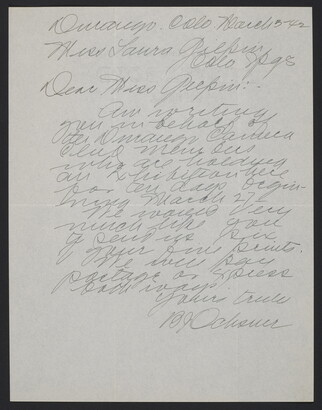 Durango. Colo March 5-42
Miss Laura Gilpin
Colo Spgs
Dear Miss Gilpin:-
Am writing
you in behalf of
the Durango Camera
Club members
who are holding
an Exhibition here
for ten days begin-
ning March 27th
We would very
much like you
to send us six
of your own prints.
We will pay
postage or express
both ways.
Yours truly
B J Ochsner